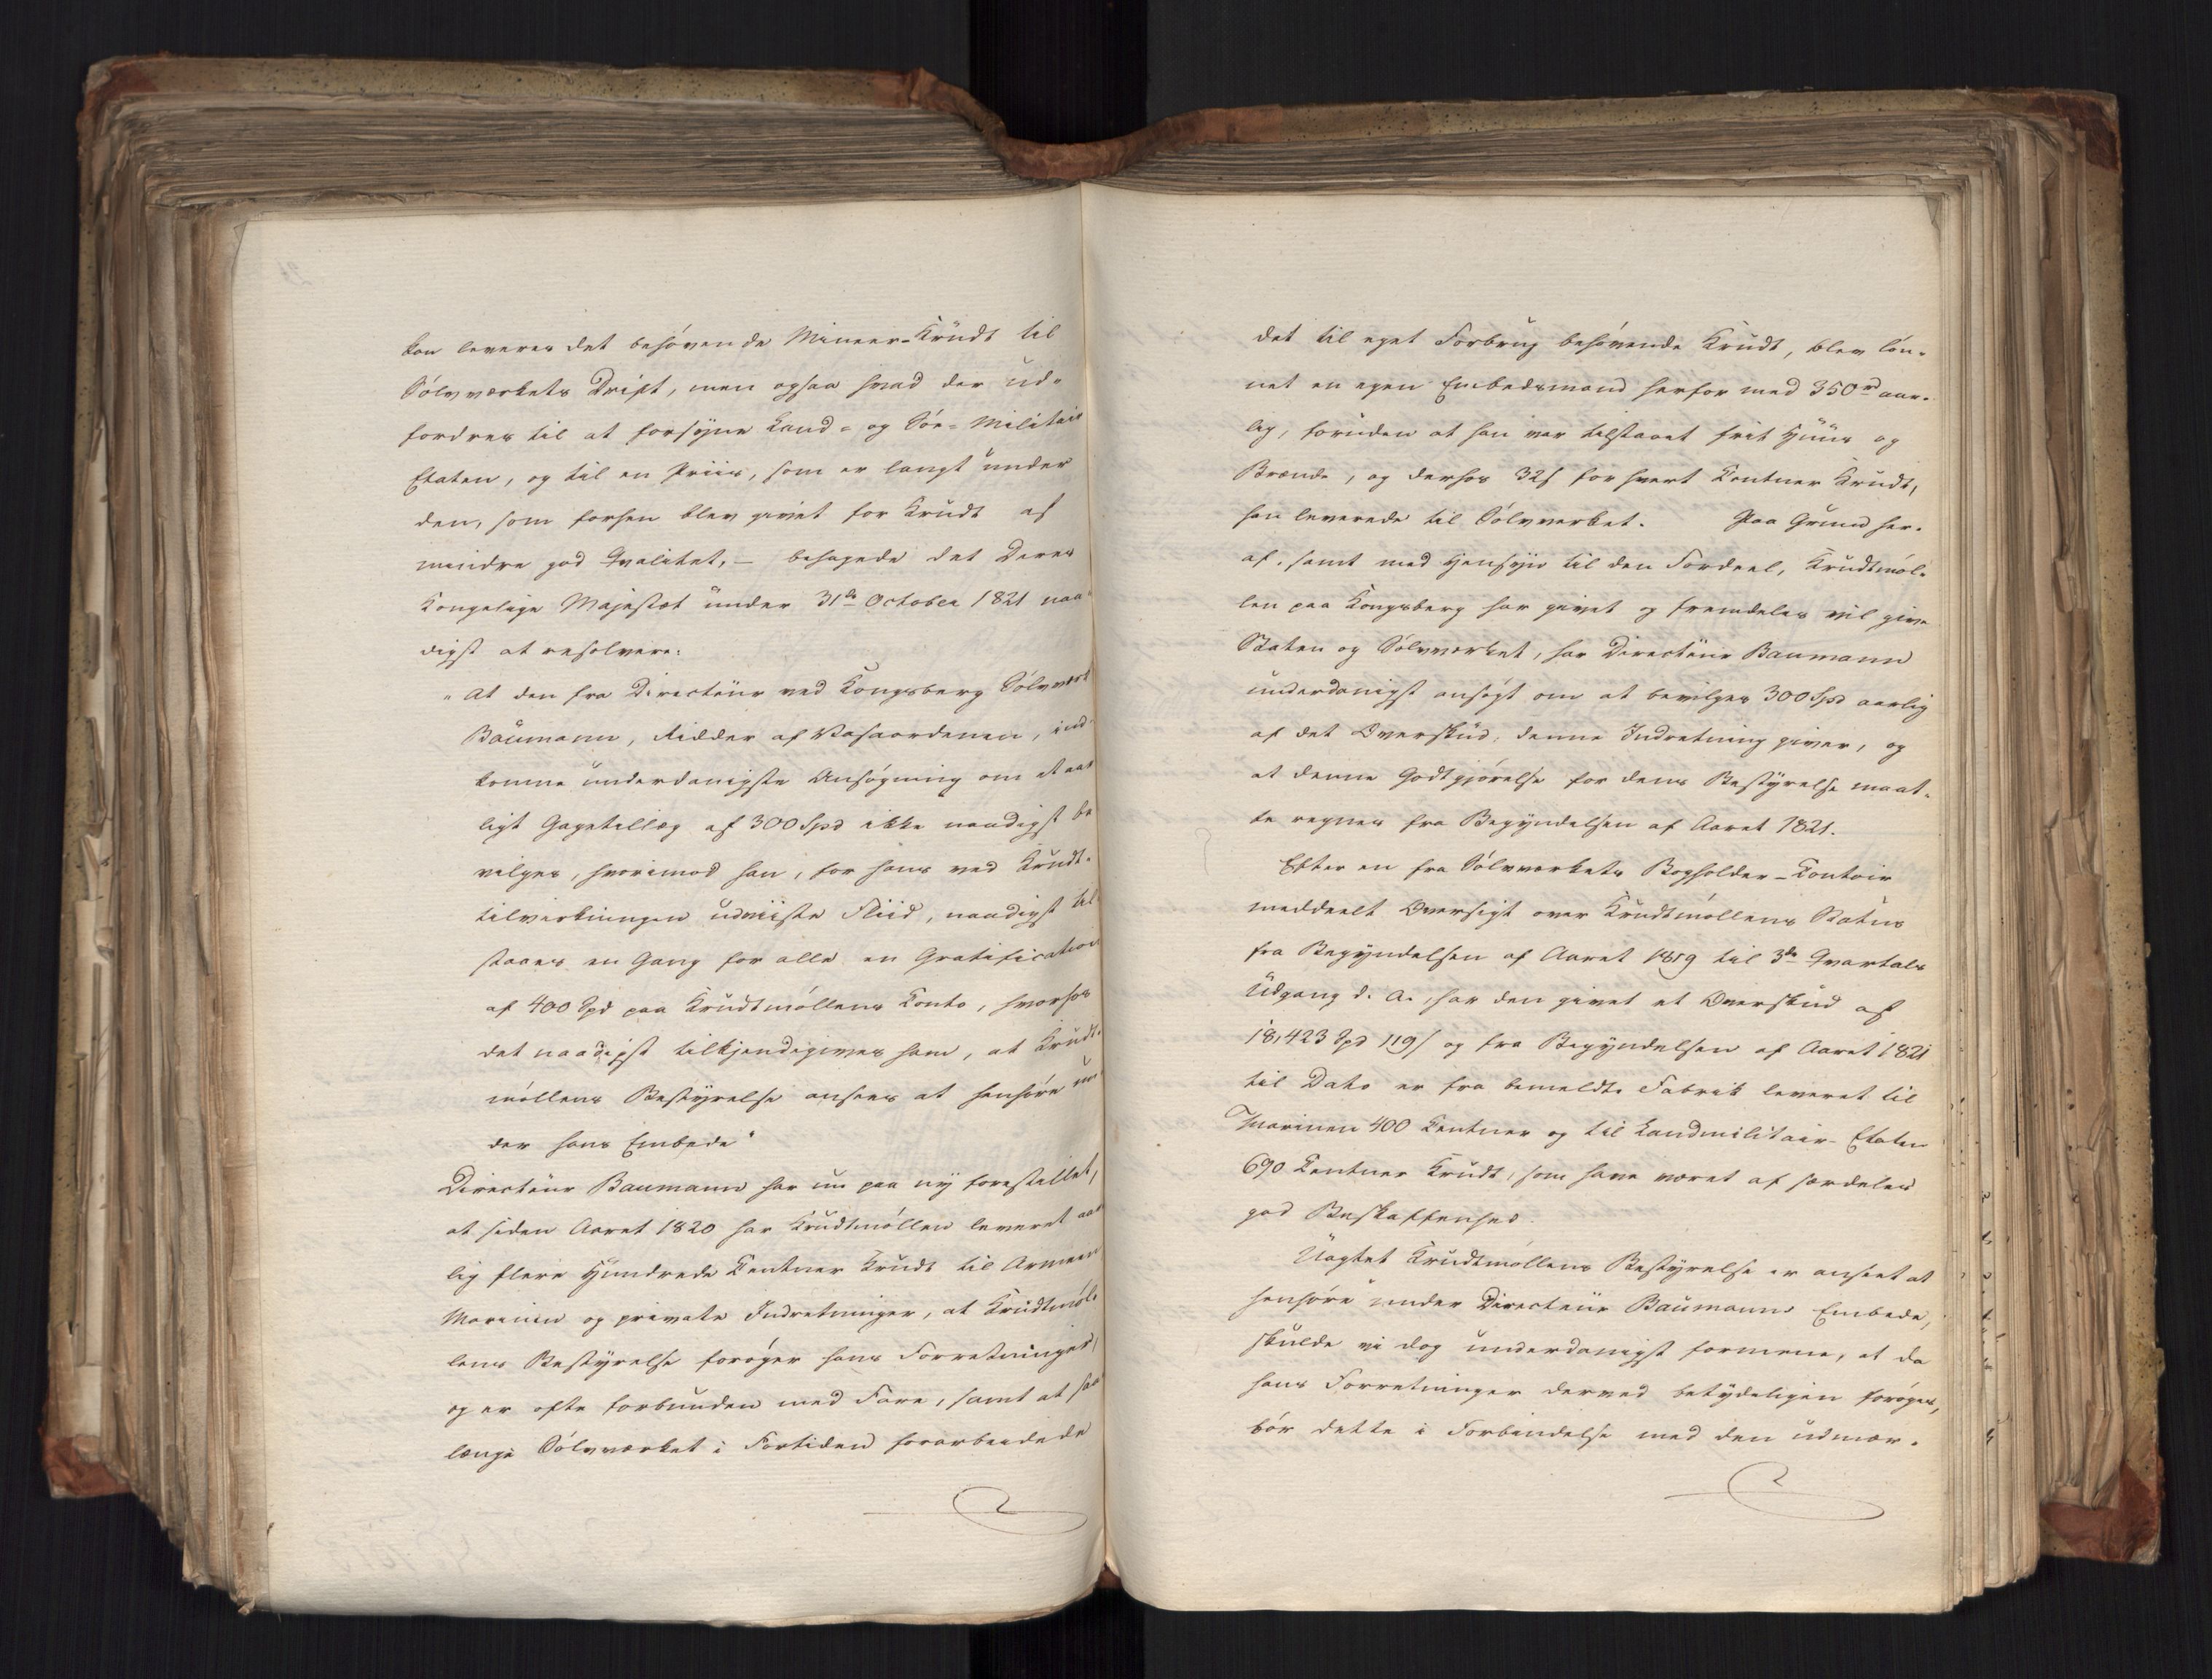 kan leveres det behøvende Mineer-Krudt til
Sølvværkets Drift, men ogsaa hvad der ud-
fordres til at forsyne Land- og Søe-Militair
Etaten, og til en Priis, som er langt under
den, som forhen blev givet for Krudt af
mindre god Qvalitet, – behagede det Deres
Kongelige Majestæt under 31de October 1821 naa-
digst at resolvere:
"At den fra Directeur ved Kongsberg Sølvværk
Baumann, Ridder af Vasaordenen, ind-
komne underdanigste Ansøgning om et aar-
ligt Gagetillæg af 300 Spd ikke naadigst be-
vilges, hvorimod han, for hans ved Krudt-
tilvirkningen udviiste Fliid, naadigst til-
staaes en Gang for alle en Gratification
af 400 Spd paa Krudtmøllens Conto, hvorhos
det naadigst tilkjendegives ham, at Krudt-
møllens Bestyrelse ansees at henhøre un-
der hans Embede"
Directeur Baumann har nu paa ny forestillet,
at siden Aaret 1820 har Krudtmøllen leveret aar-
lig flere Hundrede Centner Krudt til Armeen
Marinen og private Indretninger, at Krudtmøl-
lens Bestyrelse forøger hans Forretninger,
og er ofte forbunden med Fare, samt at saa
længe Sølvværket i Fortiden forarbeidede
det til eget Forbrug behøvende Krudt, blev løn-
net en egen Embedsmand herfor med 350 rd aar-
lig, foruden at han var tilstaaet frit Huus og
Brænde, og derhos 32 s for hvert Centner Krudt,
han leverede til Sølvværket. Paa Grund her-
af, samt med Hensyn til den Fordeel, Krudtmøl-
len paa Kongsberg har givet og fremdeles vil give
Staten og Sølvværket, har Directeur Baumann
underdanigst ansøgt om at bevilges 300 Spd aarlig
af det Overskud, denne Indretning giver, og
at denne Godtgjørelse for dens Bestyrelse maat-
te regnes fra Begyndelsen af Aaret 1821.
Efter en fra Sølvværkets Bogholder-Contoir
meddeelt Oversigt over Krudtmøllens Status
fra Begyndelsen af Aaret 1819 til 3de Qvartals
Udgang d. A., har den givet et Overskud af
18,423 Spd 119 s og fra Begyndelsen af Aaret 1821
til Dato er fra bemeldte Fabrik leveret til
Marinen 400 Centner og til Landmilitair-Etaten
690 Centner Krudt, som have været af særdeles
god Beskaffenhed.
Uagtet Krudtmøllens Bestyrelse er anseet at
henhøre under Directeur Baumanns Embede,
skulde vi dog underdanigst formene, at da
hans Forretninger derved betydeligen forøges,
bør dette i Forbindelse med den udmær-